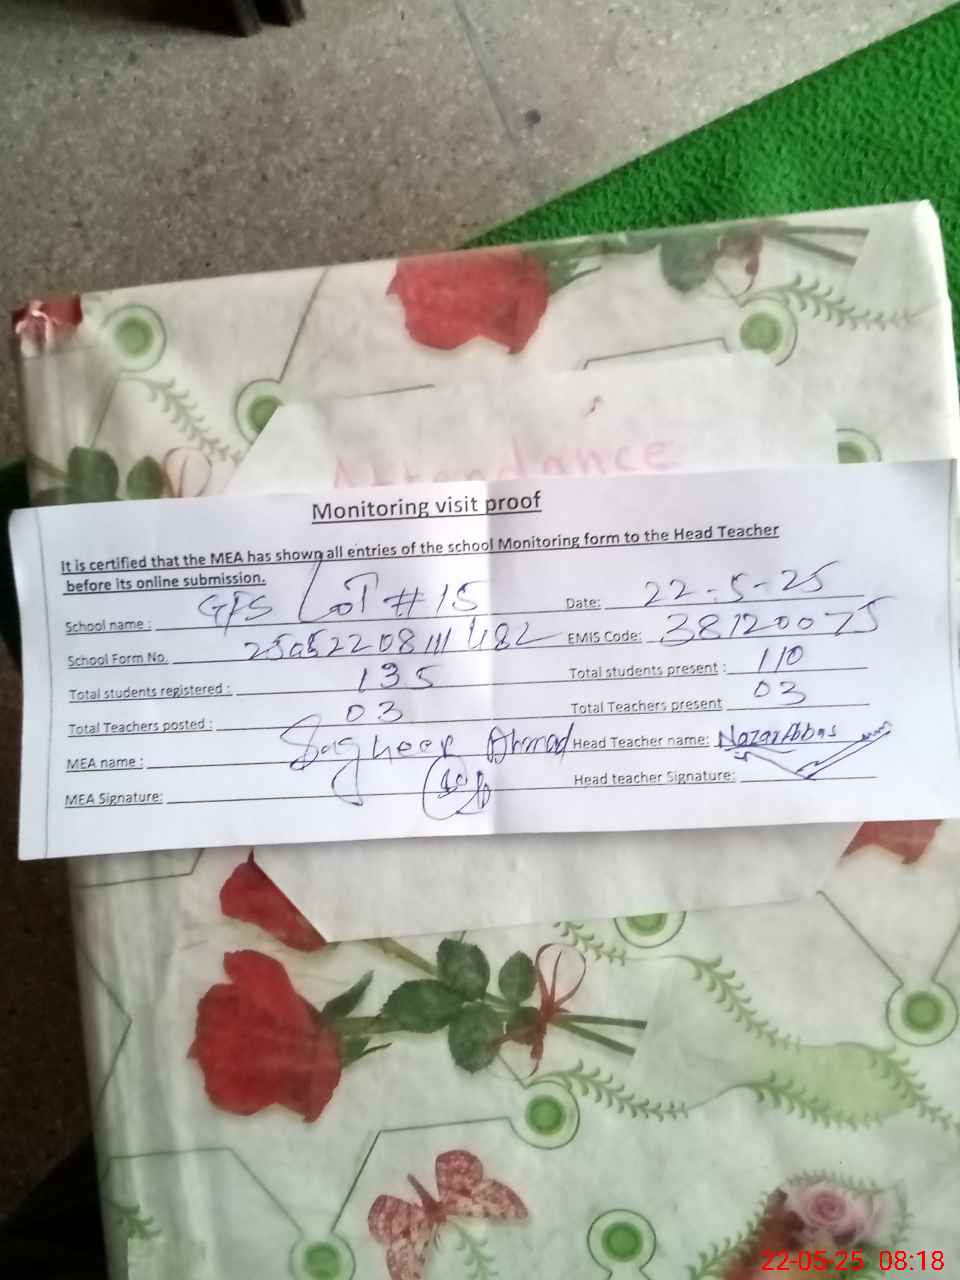 Attendance
Monitoring visit proof
It is certified that the MEA has shown all entries of the school Monitoring form to the Head Teacher
before its online submission.
School name : GPS LOT # 15 Date: 22-5-25
School Form No. EMIS Code: 38120075
Total students registered : 135 Total students present : 110
Total Teachers posted : 03 Total Teachers present 03
MEA name : Sagheer Ahmad Head Teacher name: Nazar Abbas
MEA Signature: Head teacher Signature:
22-05-25 08:18